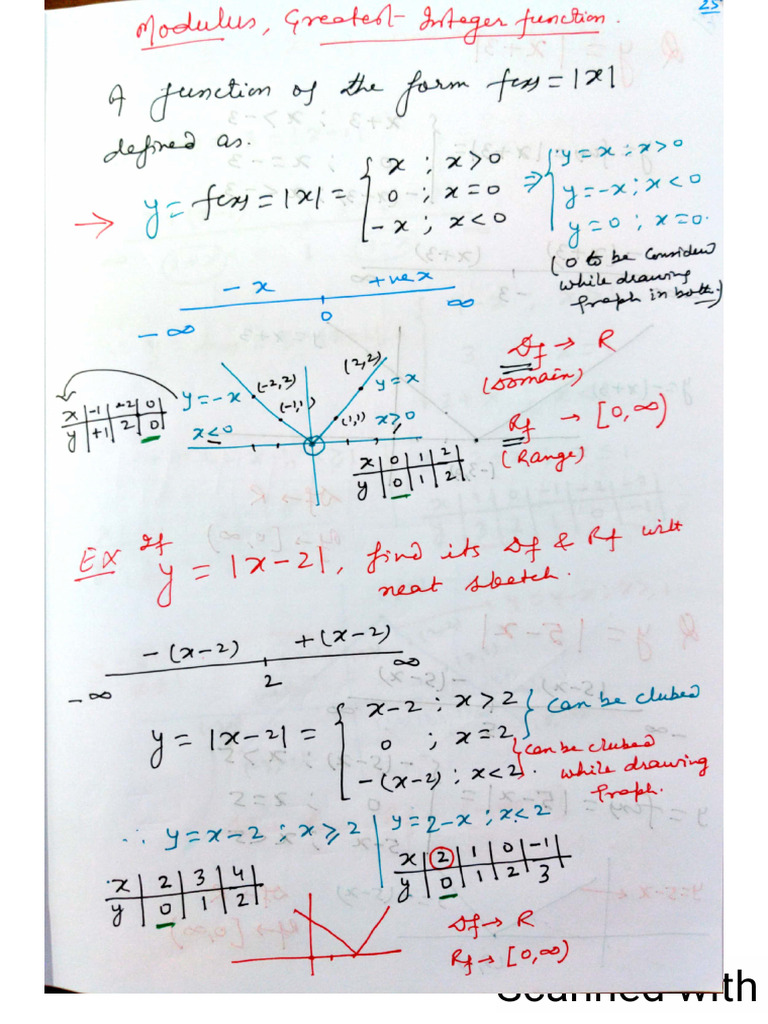 25
Modulus, Greatest Integer function.
A function of the form f(x) = |x|
defined as.
→ y = f(x) = |x| = { x ; x>0
0 ; x=0
-x ; x<0
⇒ { y = x ; x>0
y = -x ; x<0
y = 0 ; x=0.
(0 to be considered
while drawing
graph in both)
-x +ve x
-∞ 0 ∞
y=-x (-2,2) (2,2) y=x
(-1,1) (1,1)
x≤0 x≥0
x | -1 | -2 | 0
y | +1 | 2 | 0
x | 0 | 1 | 2
y | 0 | 1 | 2
Df → R
(Domain)
Rf → [0,∞)
(Range)
Ex If
y = |x-2|, find its Df & Rf with
neat sketch.
-(x-2) +(x-2)
-∞ 2 ∞
y = |x-2| = { x-2 ; x>2
0 ; x=2
-(x-2) ; x<2.
} can be clubed
} can be clubed
while drawing
graph.
∴ y = x-2 ; x≥2 | y = 2-x ; x<2
x | 2 | 3 | 4
y | 0 | 1 | 2
x | 2 | 1 | 0 | -1
y | 0 | 1 | 2 | 3
Df → R
Rf → [0,∞)
Scanned with